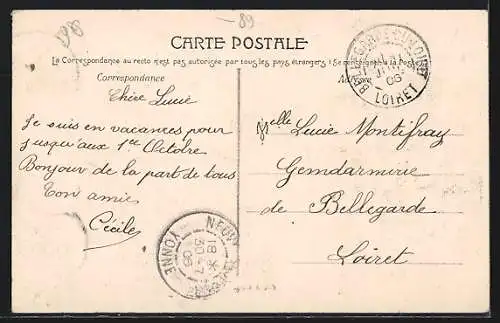 -89
CARTE POSTALE
La Correspondance au recto n'est pas autorisée par tous les pays étrangers
Correspondance
Chère Lucie
Je suis en vacances pour
jusqu'aux 1er Octobre
Bonjour de la part de tous
Ton amie
Cécile
BELLEGARDE-DU-LOIRET
LOIRET
Melle Lucie Montifray
Gemdarmirie
de Bellegarde
Loiret
YONNE
18 *
30-7
06